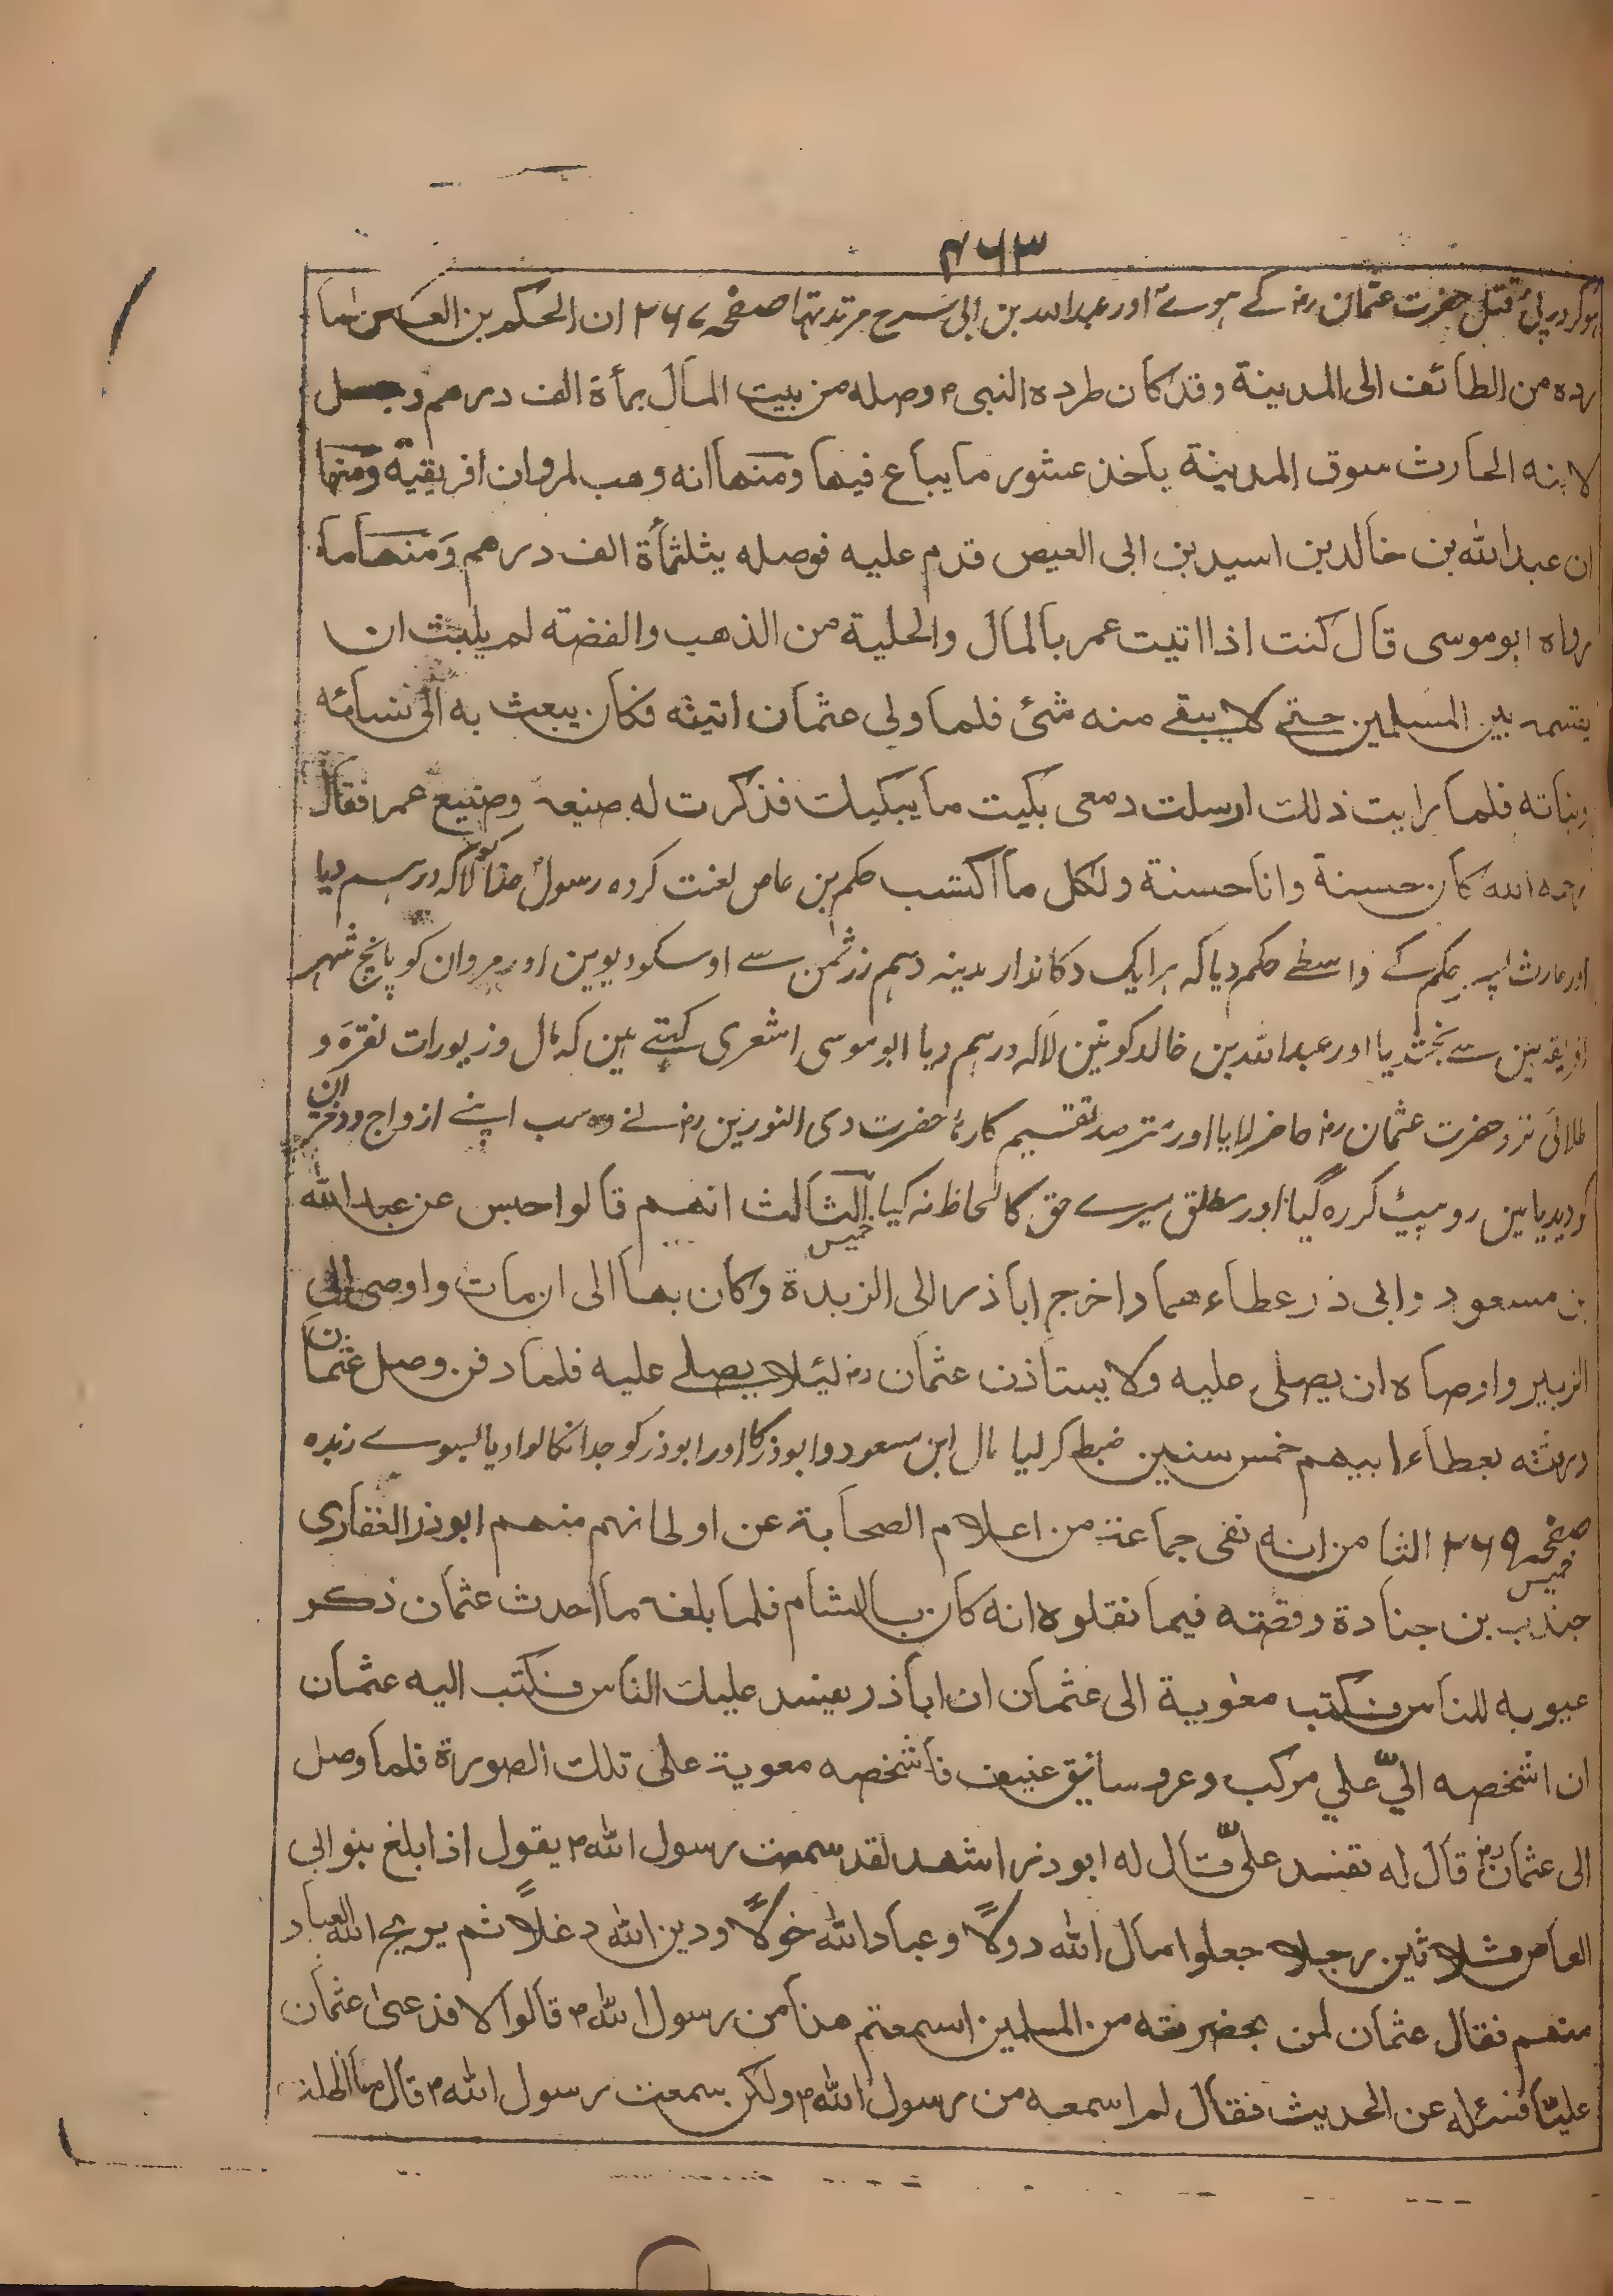 ۴۶۳
ہوکر درپئ قتل حضرت عثمان رض کے ہوے اور عبداللہ بن ابی سرح مرتد تھا صفحہ ۲۶۷ ان الحکم بن العاص لما
رده من الطائف الی المدینة وقد کان طرده النبی م وصله من بیت المال بمأة الف درهم وجعل
لابنه الحارث سوق المدینة یأخذ عشور ما یباع فیها ومنها انه وهب لمروان افریقیة ومنها
ان عبدالله بن خالد بن اسید بن ابی العیص قدم علیه فوصله بثلثمأة الف درهم ومنها ما
رواه ابوموسی قال کنت اذا اتیت عمر بالمال والحلیة من الذهب والفضة لم یلبث ان
یقسمه بین المسلمین حتے لا یبقے منه شئ فلما ولی عثمان اتیته فکان یبعث به الی نسائه
وبناته فلما رایت ذلک ارسلت دمعی بکیت ما یبکیک فذکرت له صنیعه وصنیع عمر فقال
رحمه الله کان حسنة وانا حسنة ولکل ما اکتسب حکم بن عاص لعنت کردہ رسول خدا کو لاکہ درہم دیا
اور حارث پسر حکم کے واسطے حکم دیا کہ ہر ایک دکاندار مدینہ دہم زر ثمن سے اوسکو دیوین اور مروان کو پانچ شہر
افریقہ مین سے بخشدیا اور عبداللہ بن خالد کو تین لاکہ درہم دیا ابوموسی اشعری کہتے ہین کہ مال وزیورات نقرہ و
طلائی نزد حضرت عثمان رض حاضر لایا اور مترصد تقسیم کا رہا حضرت ذی النورین رض نے وہ سب اپنے ازواج ودختران
کو دیدیا مین رو پیٹ کر رہ گیا اور مطلق میرے حق کا لحاظ نہ کیا خمیس الثالث انهم قالوا حبس عن عبدالله
بن مسعود وابی ذر عطاءهما واخرج اباذر الی الزبدة وکان بها الی ان مات واوصی الی
الزبیر واوصاه ان یصلی علیه ولا یستاذن عثمان رض لئلا یصلے علیه فلما دفن وصل عثمان
ورثته بعطاء ابیهم خمس سنین ضبط کرلیا مال ابن مسعود وابوذر کا اور ابوذر کو جدا نکالوا دیا بسوے زبدہ
صفحہ ۲۶۹ خمیس الثامن انه نفی جماعة من اعلام الصحابة عن اوطانهم منهم ابوذر الغفاری
جندب بن جنادة وقصته فیما نقلوه انه کان بالشام فلما بلغه ما احدث عثمان ذکر
عیوبه للناس فکتب معویة الی عثمان ان اباذر یفسد علیک الناس فکتب الیه عثمان
ان اشخصه الیّ علی مرکب وعر وسائق عنیف فاشخصه معویة علی تلک الصورة فلما وصل
الی عثمان رض قال له تفسد علیّ قال له ابوذر اشهد لقد سمعت رسول الله م یقول اذا بلغ بنو ابی
العاص ثلاثین رجلا جعلوا مال الله دولاً وعباد الله خولاً ودین الله دغلاً ثم یریح الله العباد
منهم فقال عثمان لمن بحضرته من المسلمین اسمعتم هذا من رسول الله م قالوا لا فدعی عثمان
علیّاً فسئله عن الحدیث فقال لم اسمعه من رسول الله م ولکن سمعت رسول الله م قال ما اظلت